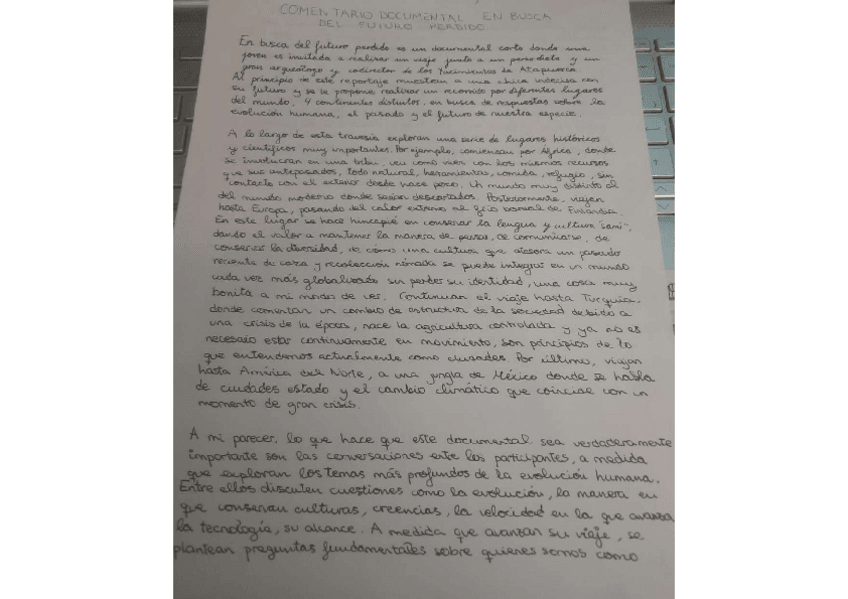 COMENTARIO DOCUMENTAL EN BUSCA
DEL FUTURO PERDIDO
En busca del futuro perdido es un documental corto donde una
joven es invitada a realizar un viaje junto a un periodista y un
gran arqueólogo y codirector de los Yacimientos de Atapuerca.
Al principio de este reportaje muestran a una chica indecisa con
su futuro y se le propone realizar un recorrido por diferentes lugares
del mundo, 4 continentes distintos, en busca de respuestas sobre la
evolución humana, el pasado y el futuro de nuestra especie.
A lo largo de esta travesía exploran una serie de lugares históricos
y científicos muy importantes. Por ejemplo, comienzan por África, donde
se involucran en una tribu, ven como viven con los mismos recursos
que sus antepasados, todo natural, herramientas, comida, refugio, sin
contacto con el exterior desde hace poco. Un mundo muy distinto al
del mundo moderno donde serían descartados. Posteriormente, viajan
hasta Europa, pasando del calor extremo al frío boreal de Finlandia.
En este lugar se hace hincapié en conservar la lengua y cultura "sami",
dando el valor a mantener la manera de pensar, de comunicarse, de
conservar la diversidad, de cómo una cultura que atesora un pasado
reciente de caza y recolección nómada se puede integrar en un mundo
cada vez más globalizado sin perder su identidad, una cosa muy
bonita a mi modo de ver. Continuan el viaje hasta Turquía,
donde comentan un cambio de estructura de la sociedad debido a
una crisis de la época, nace la agricultura controlada y ya no es
necesaio estar continuamente en movimiento, son principios de lo
que entendemos actualmente como ciudades. Por último, viajan
hasta América del Norte, a una jungla de México donde se habla
de ciudades estado y el cambio climático que coincide con un
momento de gran crisis.
A mi parecer, lo que hace que este documental sea verdaderamente
importante son las conversaciones entre los participantes, a medida
que exploran los temas más profundos de la evolución humana.
Entre ellos discuten cuestiones como la evolución, la manera en
que conservan culturas, creencias, la velocidad en la que avanza
la tecnología, su alcance. A medida que avanzan su viaje, se
plantean preguntas fundamentales sobre quienes somos como